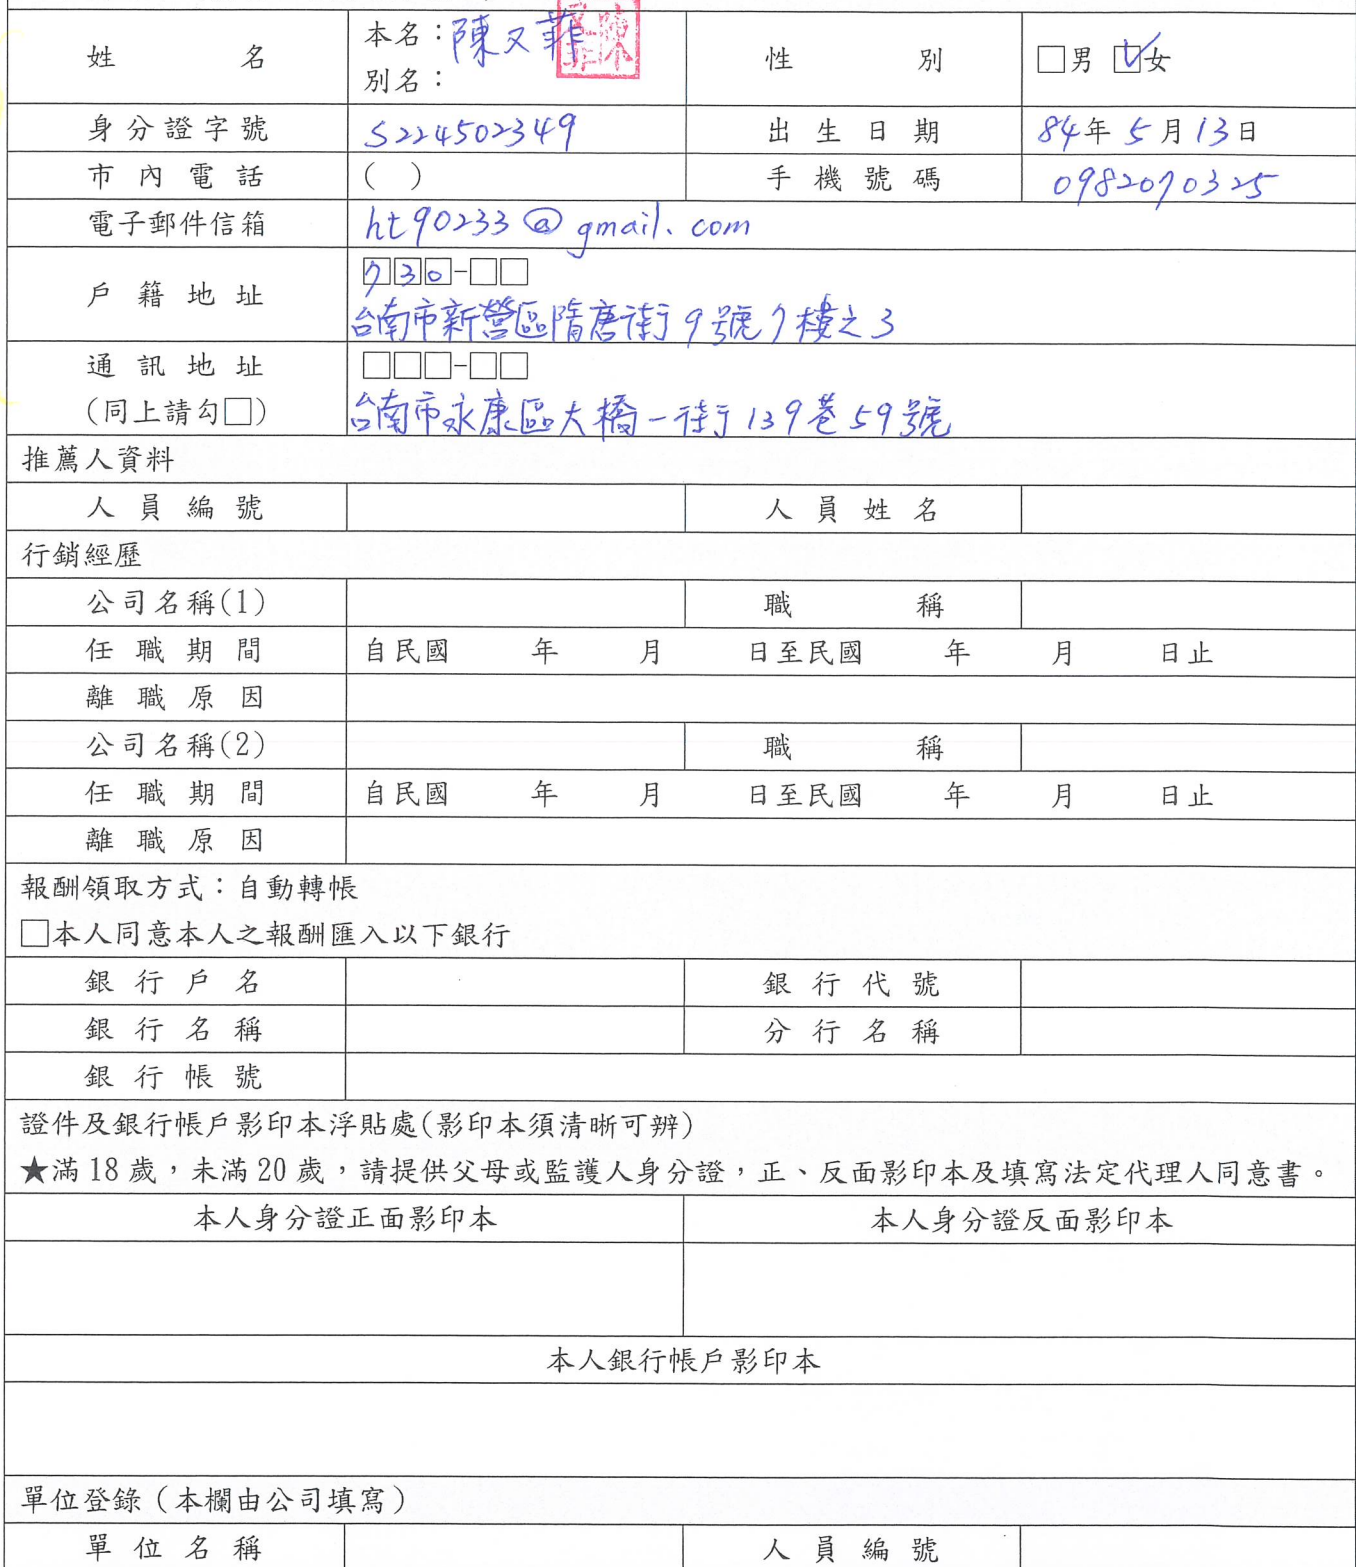 姓名 本名：陳又菲 性別 □男 ☑女
別名：
身分證字號 S224502349 出生日期 84年5月13日
市內電話 ( ) 手機號碼 0982070325
電子郵件信箱 ht90233@gmail.com
戶籍地址 730-□□
台南市新營區隋唐街9號7樓之3
通訊地址 □□□-□□
(同上請勾□) 台南市永康區大橋一街139巷59號
推薦人資料
人員編號 人員姓名
行銷經歷
公司名稱(1) 職稱
任職期間 自民國 年 月 日至民國 年 月 日止
離職原因
公司名稱(2) 職稱
任職期間 自民國 年 月 日至民國 年 月 日止
離職原因
報酬領取方式：自動轉帳
□本人同意本人之報酬匯入以下銀行
銀行戶名 銀行代號
銀行名稱 分行名稱
銀行帳號
證件及銀行帳戶影印本浮貼處(影印本須清晰可辨)
★滿18歲，未滿20歲，請提供父母或監護人身分證，正、反面影印本及填寫法定代理人同意書。
本人身分證正面影印本 本人身分證反面影印本
本人銀行帳戶影印本
單位登錄（本欄由公司填寫）
單位名稱 人員編號